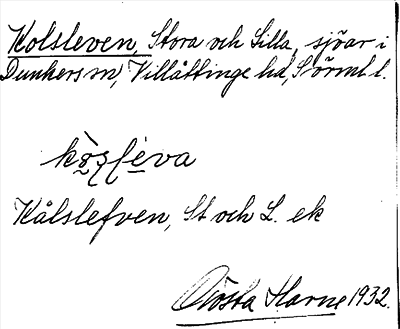 Kolsleven, Stora och Lilla, sjöar i
Dunkers sn, Villåttinge hd, Sörml. l.
Kålslefven, St och L. ek
Gösta Harne 1932.